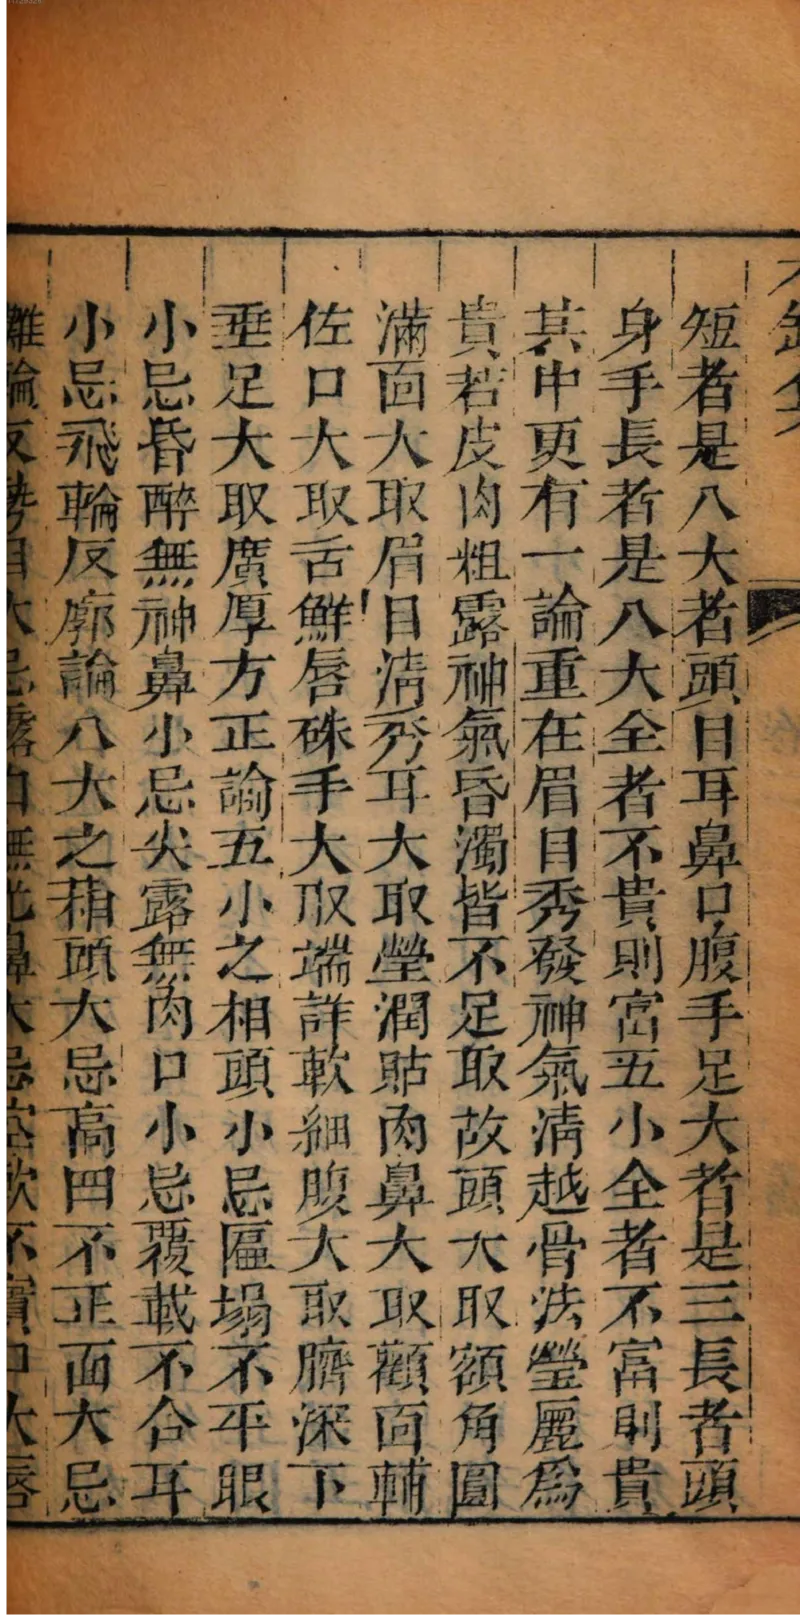 短者是八大者頭目耳鼻口腹手足大者是三長者頭
身手長者是八大全者不貴則富五小全者不富則貴
其中更有一論重在眉目秀發神氣清越骨法瑩麗爲
貴若皮肉粗露神氣昏濁皆不足取故頭大取額角圓
滿面大取眉目清秀耳大取瑩潤貼肉鼻大取顴面輔
佐口大取舌鮮唇硃手大取端詳軟細腹大取臍深下
垂足大取廣厚方正論五小之相頭小忌匾塌不平眼
小忌昏醉無神鼻小忌尖露無肉口小忌覆載不合耳
小忌飛輪反廓論八大之相頭大忌高凹不正面大忌
輪反目大忌露白無光鼻大忌不實口大唇